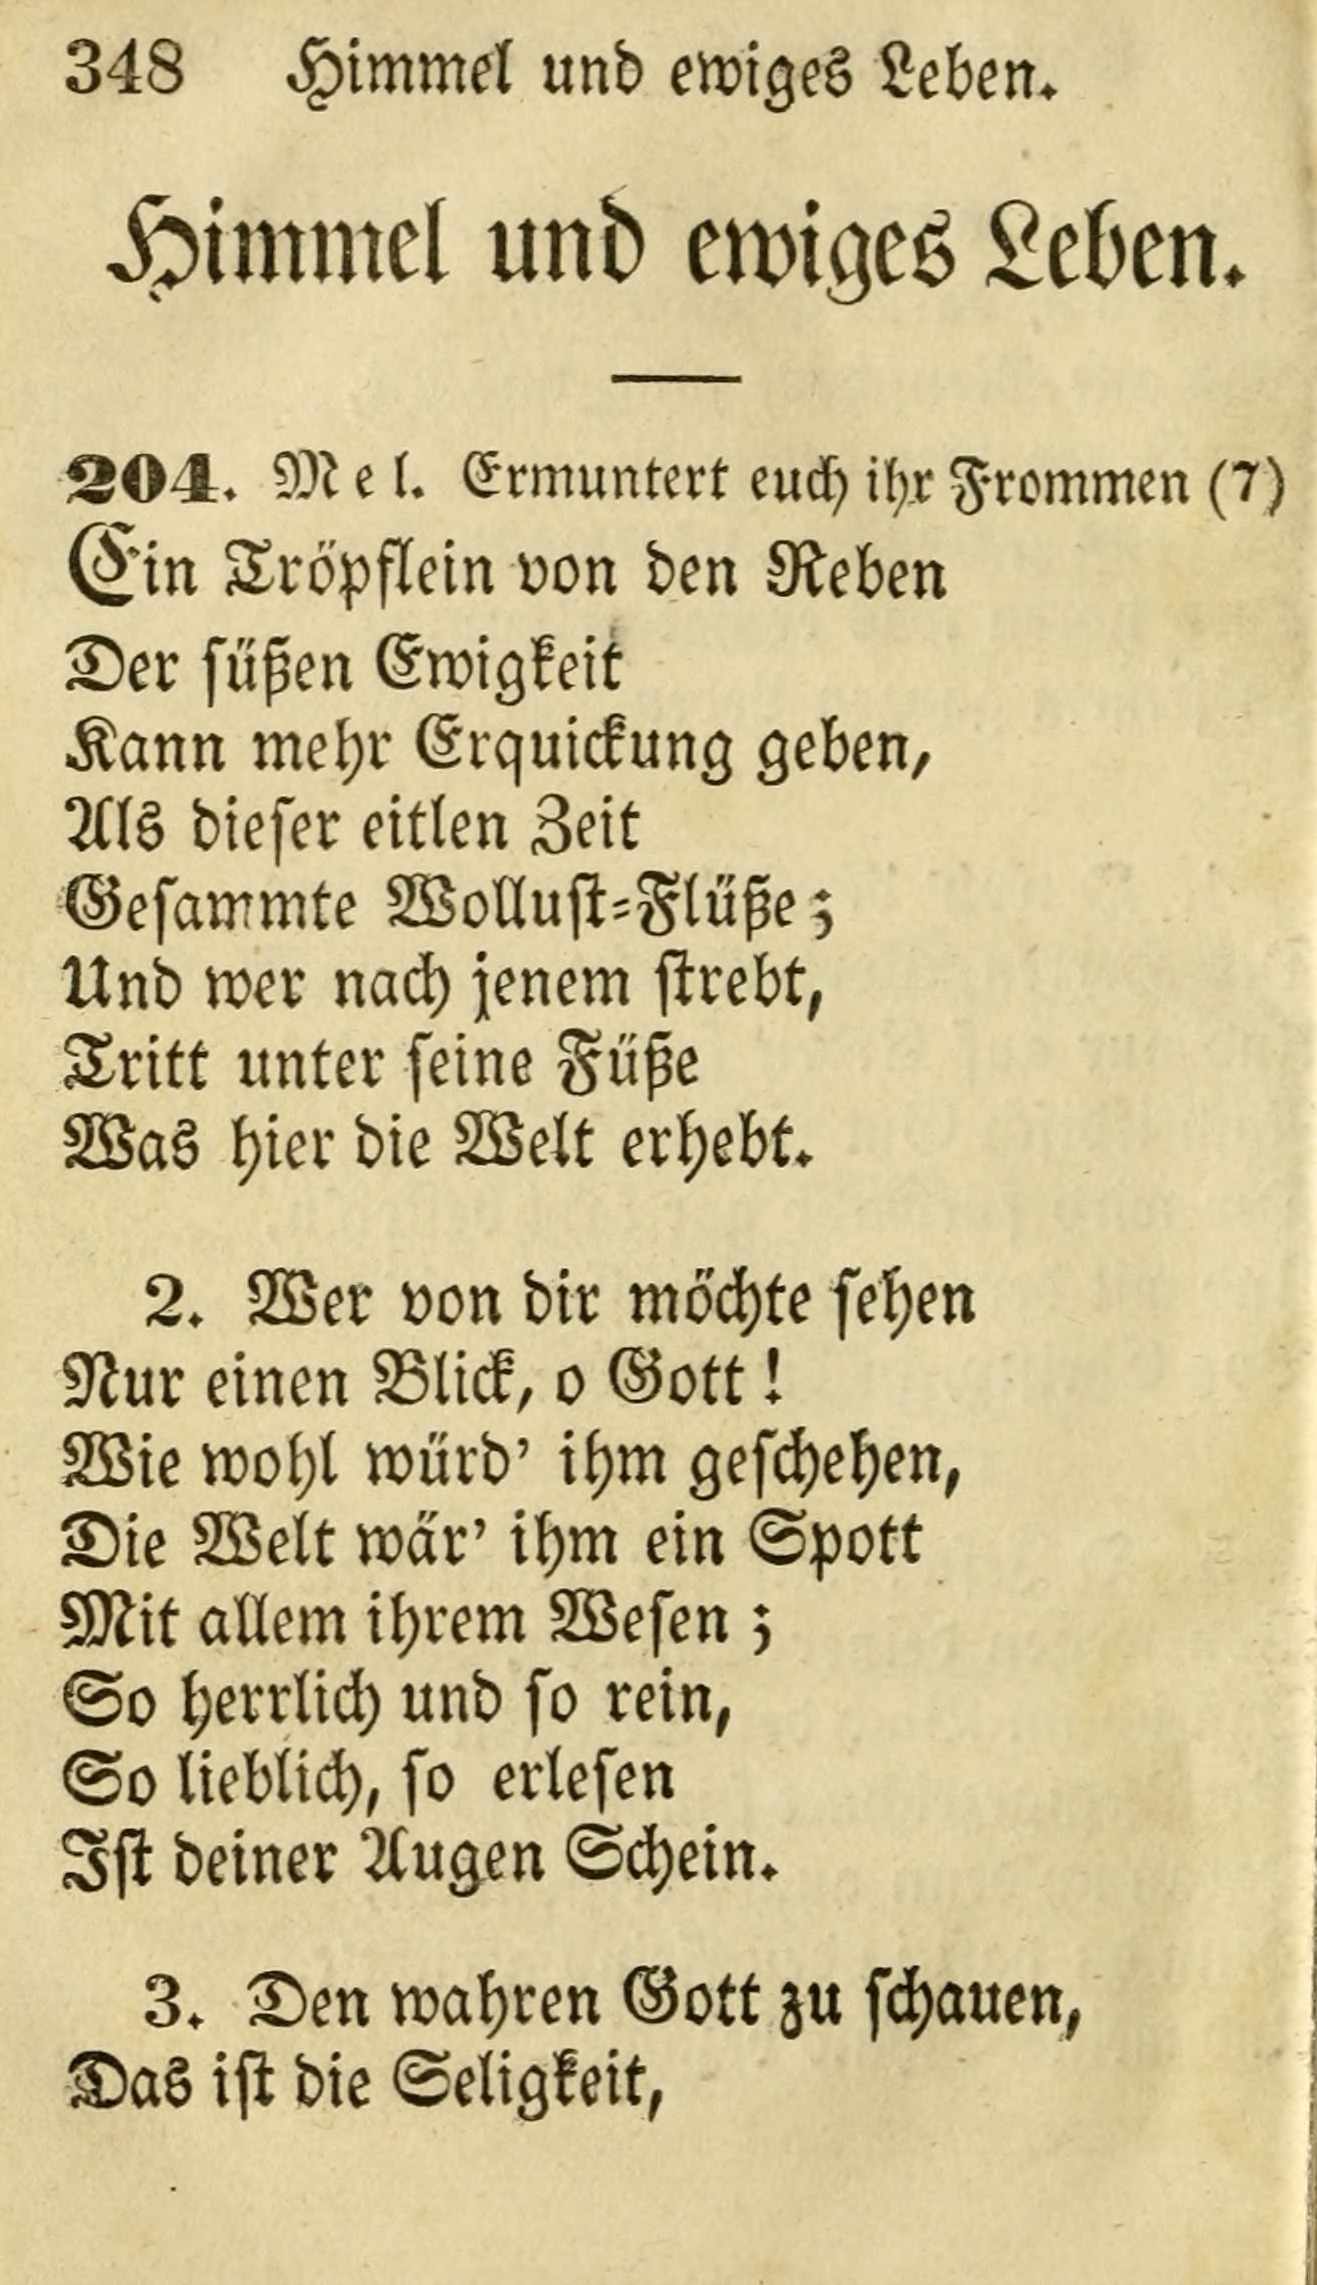 348 Himmel und ewiges Leben.
Himmel und ewiges Leben.
204. Mel. Ermuntert euch ihr Frommen (7)
Ein Tröpflein von den Reben
Der süßen Ewigkeit
Kann mehr Erquickung geben,
Als dieser eitlen Zeit
Gesammte Wollust-Flüße;
Und wer nach jenem strebt,
Tritt unter seine Füße
Was hier die Welt erhebt.
2. Wer von dir möchte sehen
Nur einen Blick, o Gott!
Wie wohl würd' ihm geschehen,
Die Welt wär' ihm ein Spott
Mit allem ihrem Wesen;
So herrlich und so rein,
So lieblich, so erlesen
Ist deiner Augen Schein.
3. Den wahren Gott zu schauen,
Das ist die Seligkeit,